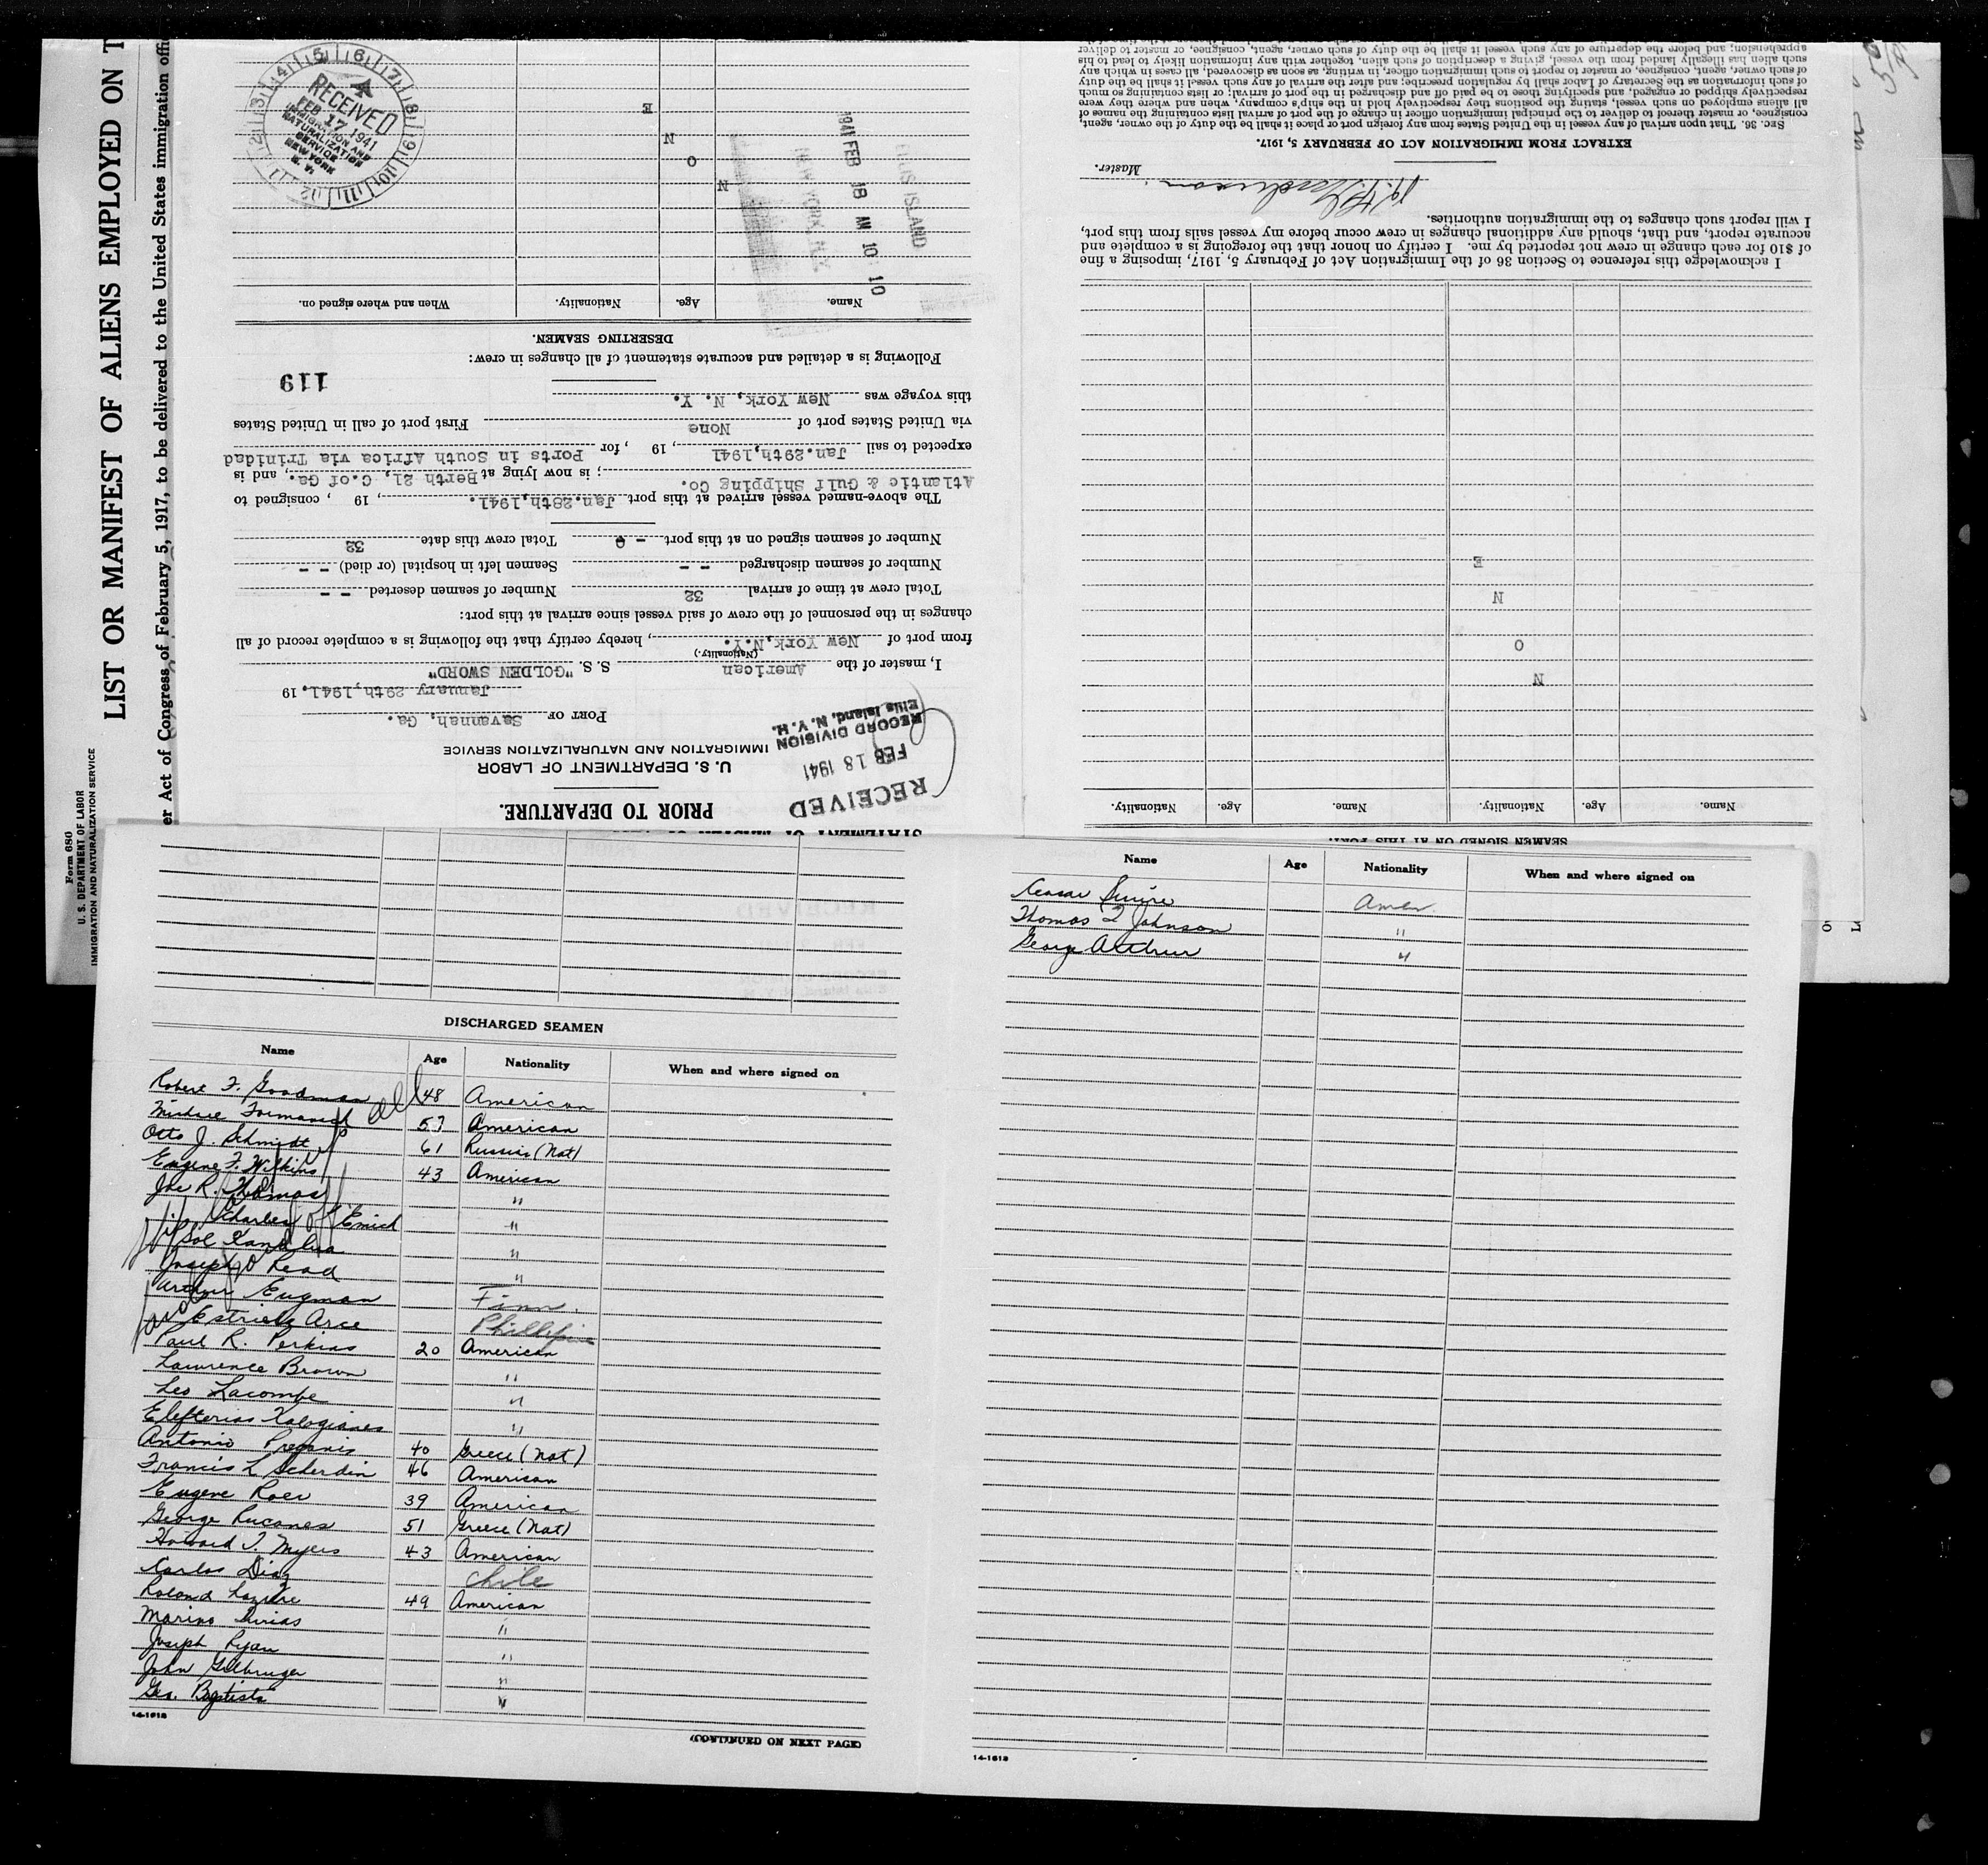 Form 680
U. S. DEPARTMENT OF LABOR
IMMIGRATION AND NATURALIZATION SERVICE
LIST OR MANIFEST OF ALIENS EMPLOYED ON T
er Act of Congress of February 5, 1917, to be delivered to the United States immigration offic
PRIOR TO DEPARTURE.
U. S. DEPARTMENT OF LABOR
IMMIGRATION AND NATURALIZATION SERVICE
RECEIVED
FEB 18 1941
RECORD DIVISION
Ellis Island, N. Y. H.
PORT OF Savannah, Ga.
January 29th,1941. 19
I, master of the American S. S. "GOLDEN SWORD"
(Nationality.)
from port of New York,N.Y. , hereby certify that the following is a complete record of all
changes in the personnel of the crew of said vessel since arrival at this port:
Total crew at time of arrival 32 Number of seamen deserted - -
Number of seamen discharged - - Seamen left in hospital (or died) - -
Number of seamen signed on at this port - 0 Total crew this date 32
The above-named vessel arrived at this port Jan.28th,1941. , 19 , consigned to
Atlantic & Gulf Shipping Co. ; is now lying at Berth 21, C.of Ga. , and is
expected to sail Jan.29th,1941 , 19 , for Ports in South Africa via Trinidad
via United States port of None First port of call in United States
this voyage was New York, N. Y.
119
Following is a detailed and accurate statement of all changes in crew:
DESERTING SEAMEN.
Name. Age. Nationality. When and where signed on.
N
O
N
E
1941 FEB 18 AM 10 10
ELLIS ISLAND
NEW YORK, N.Y.
RECEIVED
FEB 17 1941
IMMIGRATION AND
NATURALIZATION
SERVICE
NEW YORK
N. Y.
SEAMEN SIGNED ON AT THIS PORT.
Name. Age. Nationality. Name. Age. Nationality.
N
O
N
E
I acknowledge this reference to Section 36 of the Immigration Act of February 5, 1917, imposing a fine
of $10 for each change in crew not reported by me. I certify on honor that the foregoing is a complete and
accurate report, and that, should any additional changes in crew occur before my vessel sails from this port,
I will report such changes to the immigration authorities.
Master.
EXTRACT FROM IMMIGRATION ACT OF FEBRUARY 5, 1917.
SEC. 36. That upon arrival of any vessel in the United States from any foreign port or place it shall be the duty of the owner, agent,
consignee, or master thereof to deliver to the principal immigration officer in charge of the port of arrival lists containing the names of
all aliens employed on such vessel, stating the positions they respectively hold in the ship's company, when and where they were
respectively shipped or engaged, and specifying those to be paid off and discharged in the port of arrival; or lists containing so much
of such information as the Secretary of Labor shall by regulation prescribe; and after the arrival of any such vessel it shall be the duty
of such owner, agent, consignee, or master to report to such immigration officer, in writing, as soon as discovered, all cases in which any
such alien has illegally landed from the vessel, giving a description of such alien, together with any information likely to lead to his
apprehension; and before the departure of any such vessel it shall be the duty of such owner, agent, consignee, or master to deliver
DISCHARGED SEAMEN
Name Age Nationality When and where signed on
Robert F. Goodman 48 American
57 American
Otto J. Schmidt 61 Russia (Nat)
Eugene F. Wilkins 43 American
Joe R. Thomas "
Charles "
Sol "
Joseph D Read "
Arthur Engman Finn.
Arce
Paul R. Perkins 20 American
Lawrence Brown "
Leo Lacombe "
Elefterios Kalogianes "
Antonio 40 Greece (Nat)
Francis L Scherdin 46 American
Eugene Roer 39 American
George Rucanes 51 Greece (Nat)
Howard T. Myers 43 American
Carlos Diaz Chile
Roland Loziere 49 American
Marino "
Joseph Ryan "
John "
Geo. Baptista "
14-1618
(CONTINUED ON NEXT PAGE)
Name Age Nationality When and where signed on
Ceasar Amer.
Thomas L Johnson "
George Arthur "
14-1618